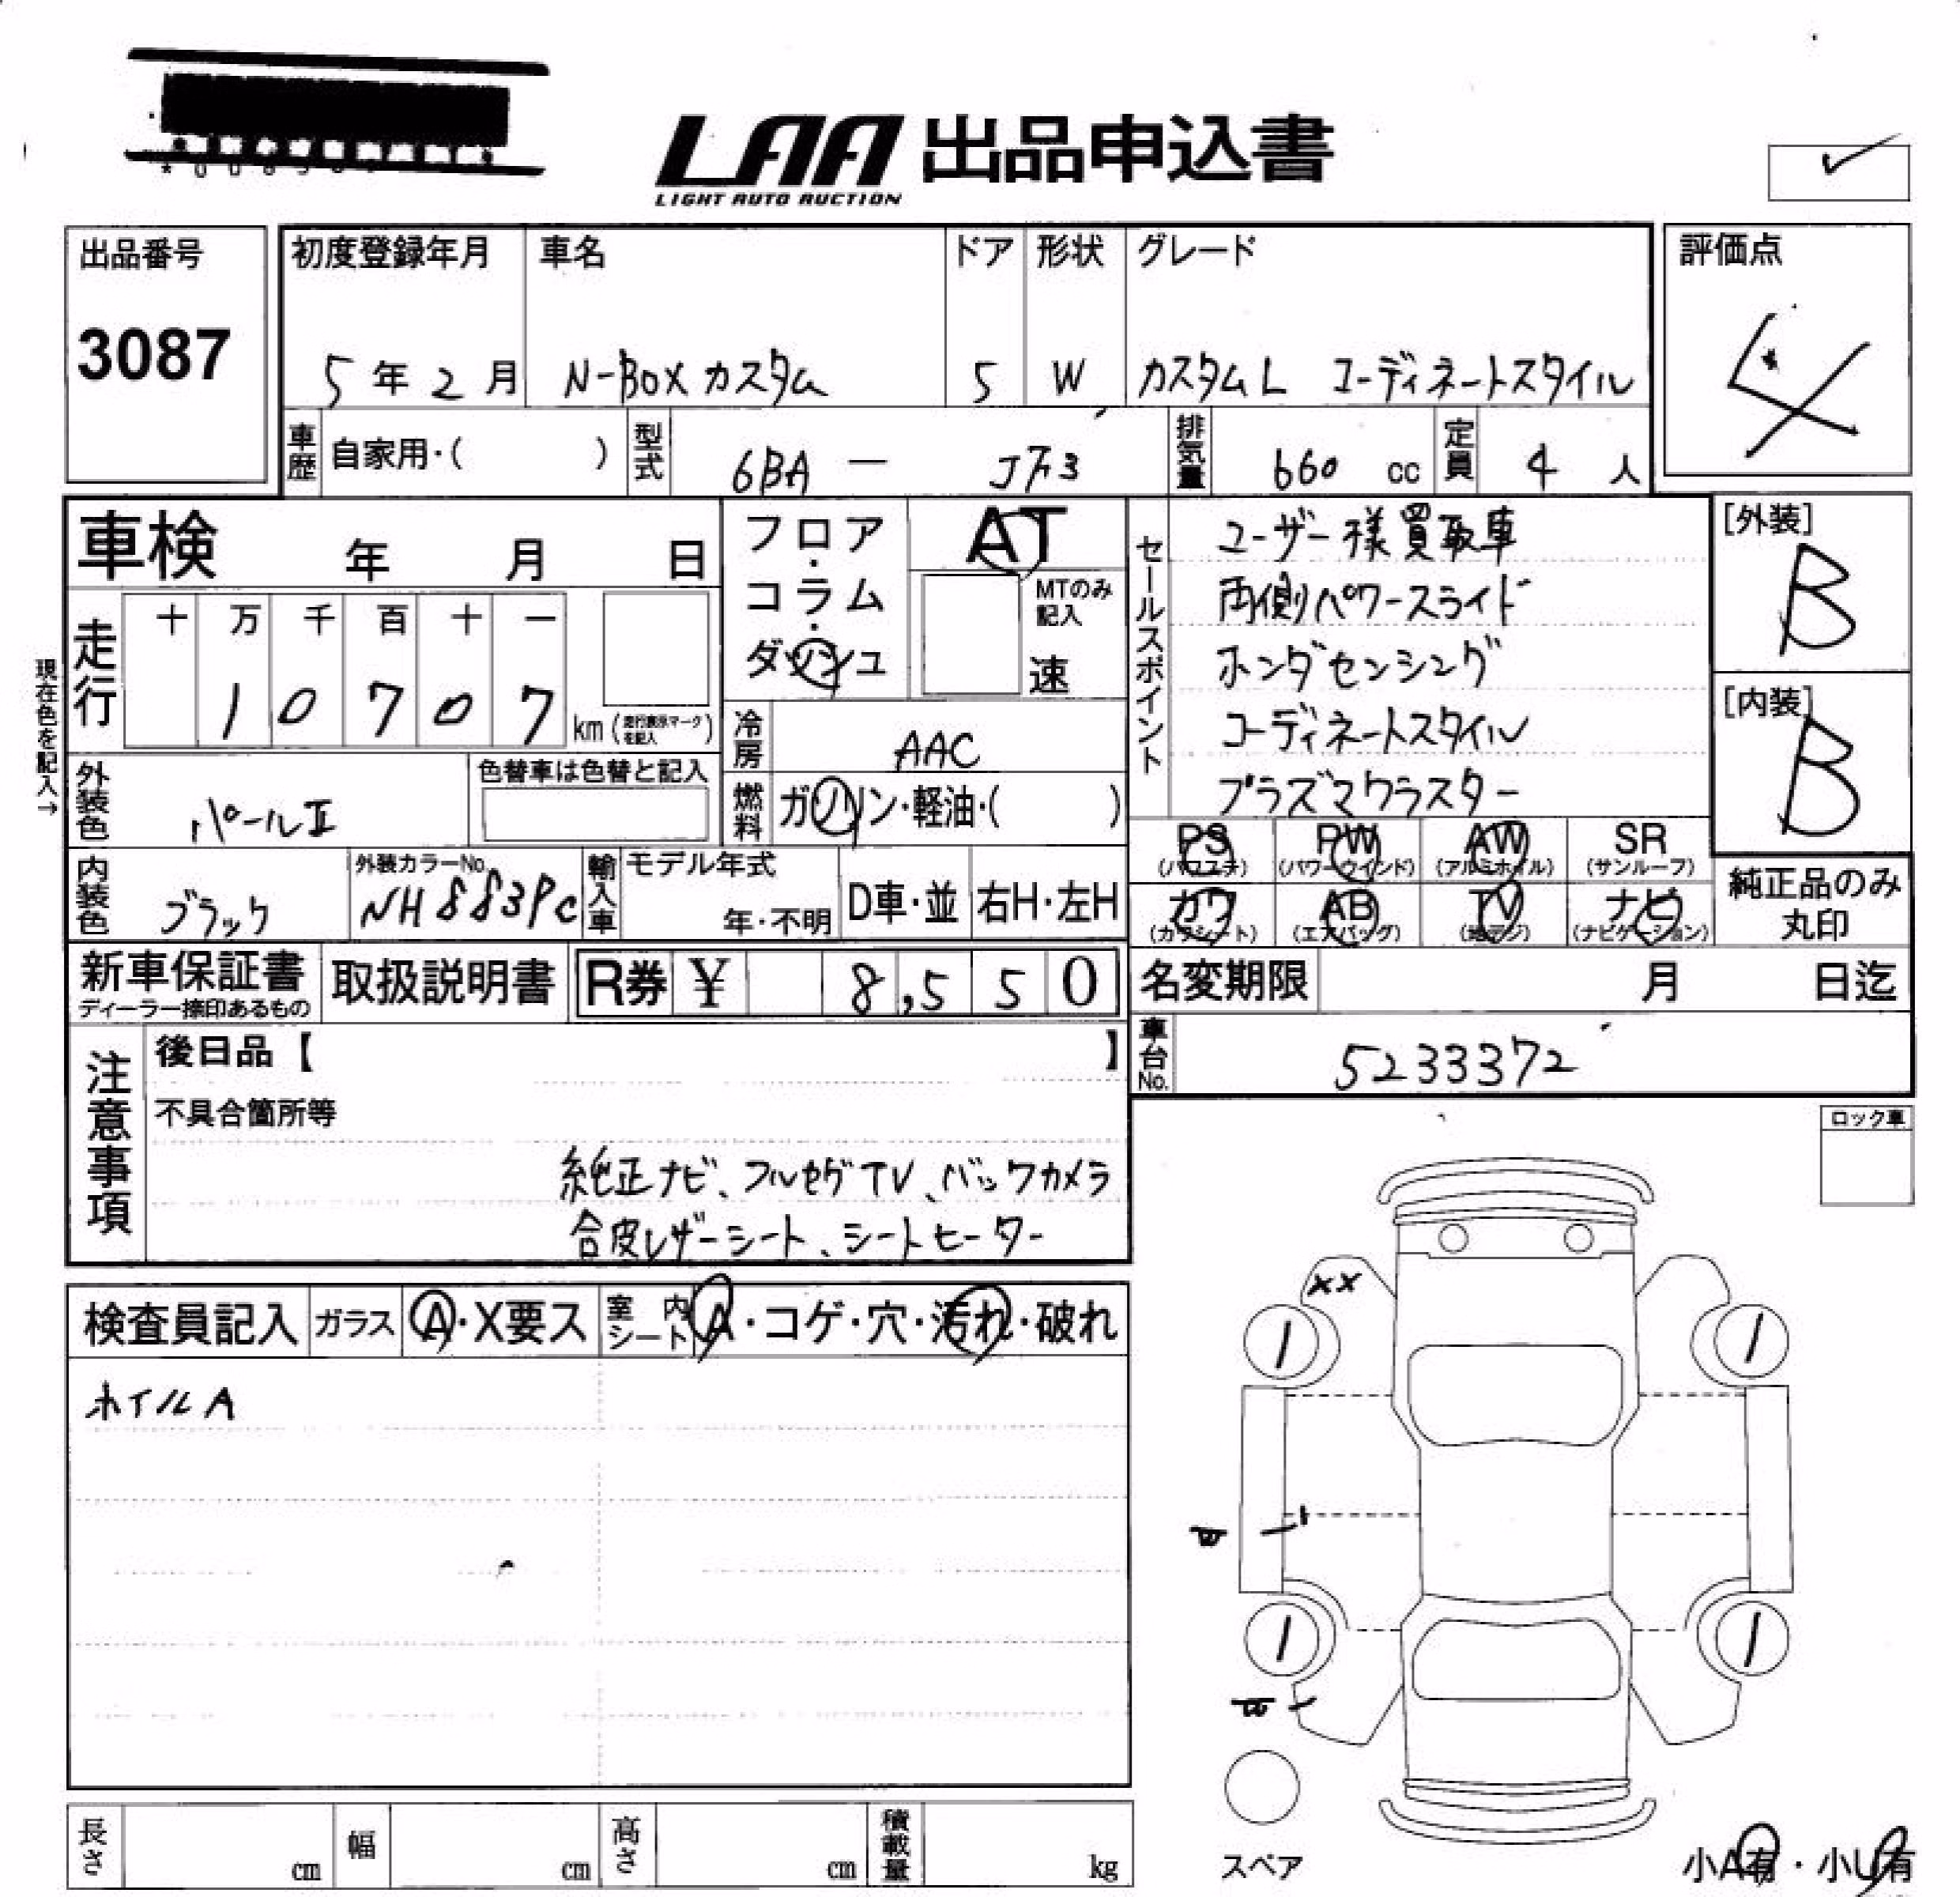 LAA 出品申込書
LIGHT AUTO AUCTION
出品番号
3087
初度登録年月
5年2月
車名
N-BOXカスタム
ドア
5
形状
W
グレード
カスタムL コーディネートスタイル
評価点
4
車歴
自家用・( )
型式
6BA - JF3
排気量
660 cc
定員
4 人
車検 年 月 日
現在色を記入→
走行
十 万 千 百 十 一
1 0 7 0 7
km (走行表示マークを記入)
フロア・コラム・ダッシュ
AT
MTのみ記入
速
冷房
AAC
燃料
ガソリン・軽油・( )
外装色
パールII
色替車は色替と記入
内装色
ブラック
外装カラーNo.
NH883PC
輸入車
モデル年式
年・不明
D車・並
右H・左H
セールスポイント
ユーザー様買取車
両側パワースライド
ホンダセンシング
コーディネートスタイル
プラズマクラスター
[外装]
B
[内装]
B
PS (パワステ)
PW (パワーウインド)
AW (アルミホイル)
SR (サンルーフ)
カワ (カワシート)
AB (エアバッグ)
TV (地デジ)
ナビ (ナビゲーション)
純正品のみ丸印
新車保証書
ディーラー捺印あるもの
取扱説明書
R券 ¥ 8,550
名変期限 月 日迄
車台No.
5233372
注意事項
後日品【 】
不具合箇所等
純正ナビ、フルセグTV、バックカメラ
合皮レザーシート、シートヒーター
ロック車
検査員記入
ガラス
A・X要ス
室内シート
A・コゲ・穴・汚れ・破れ
ホイルA
XX
スペア
小A有・小U有
長さ cm
幅 cm
高さ cm
積載量 kg